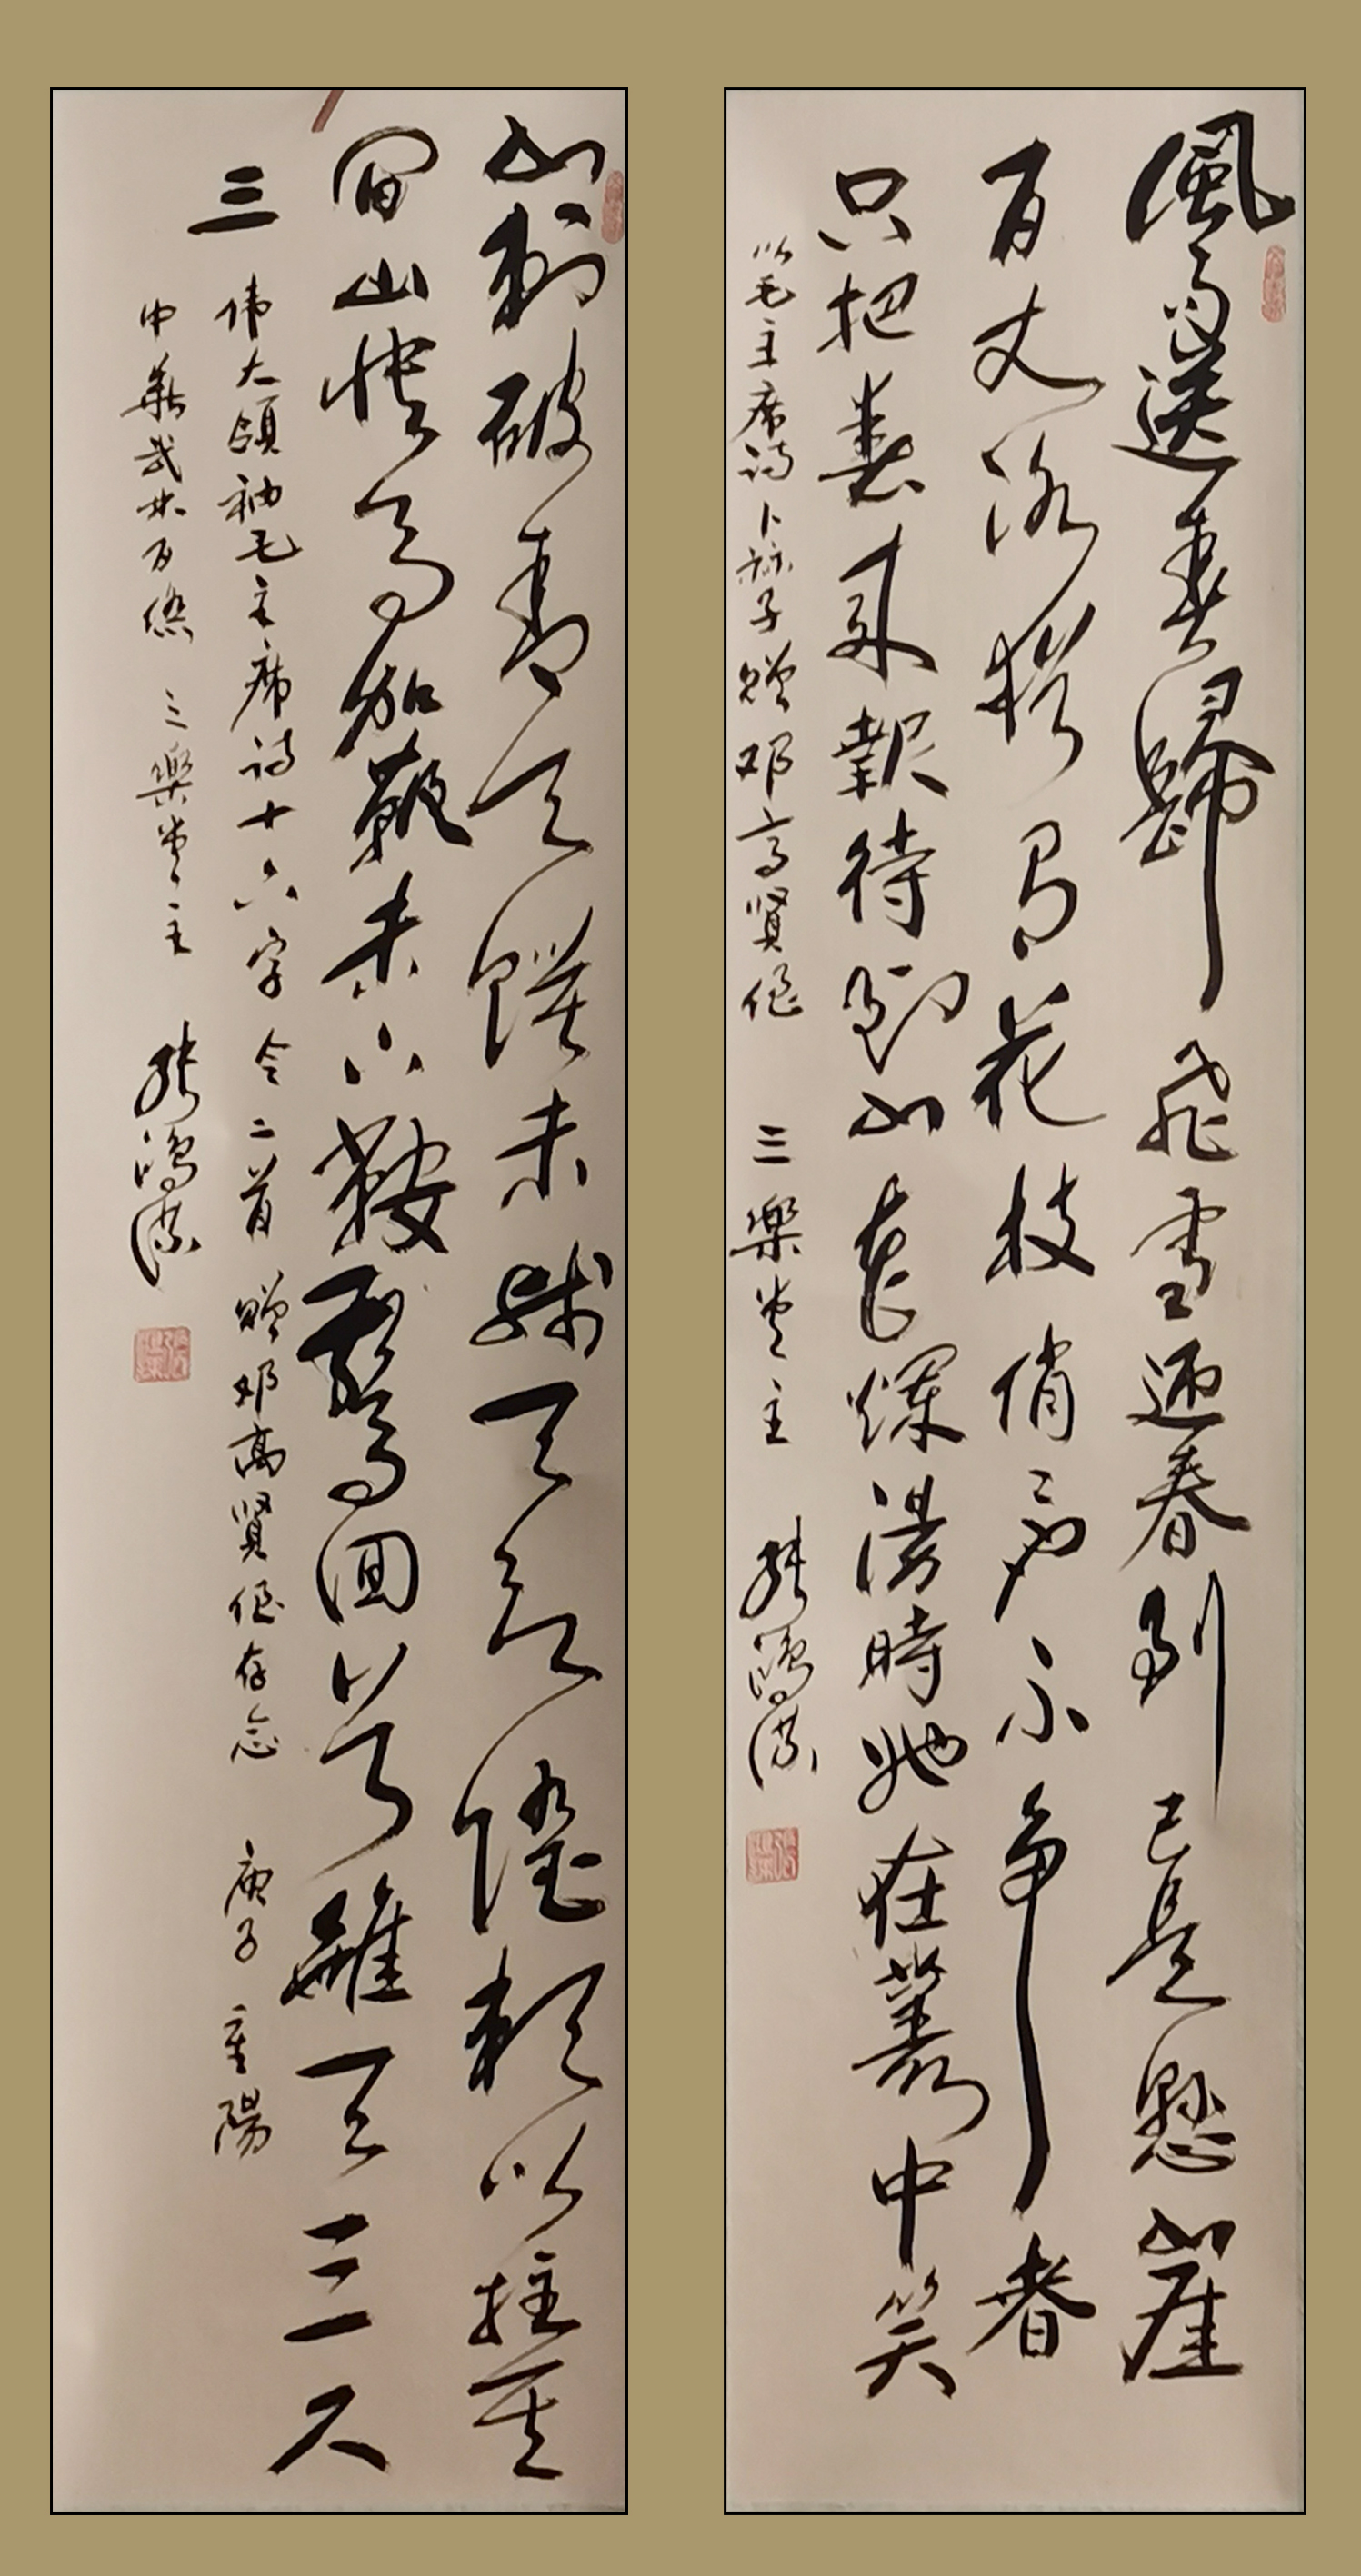 風雨送春歸飛雪迎春到已是懸崖
百丈冰猶有花枝俏〻也不争春
只把春來報待到山花爛漫時她在叢中笑
以毛主席诗卜祘子赠邓高贤侄 三樂堂主 张鸿
山刺破青天鍔未殘天欲墮賴以拄其
間山快馬加鞭未下鞍驚回首離天三尺
三 伟大領袖毛主席诗十六字令二首 赠邓高贤侄存念 庚子重陽
中華武林百傑 三樂堂主 张鸿